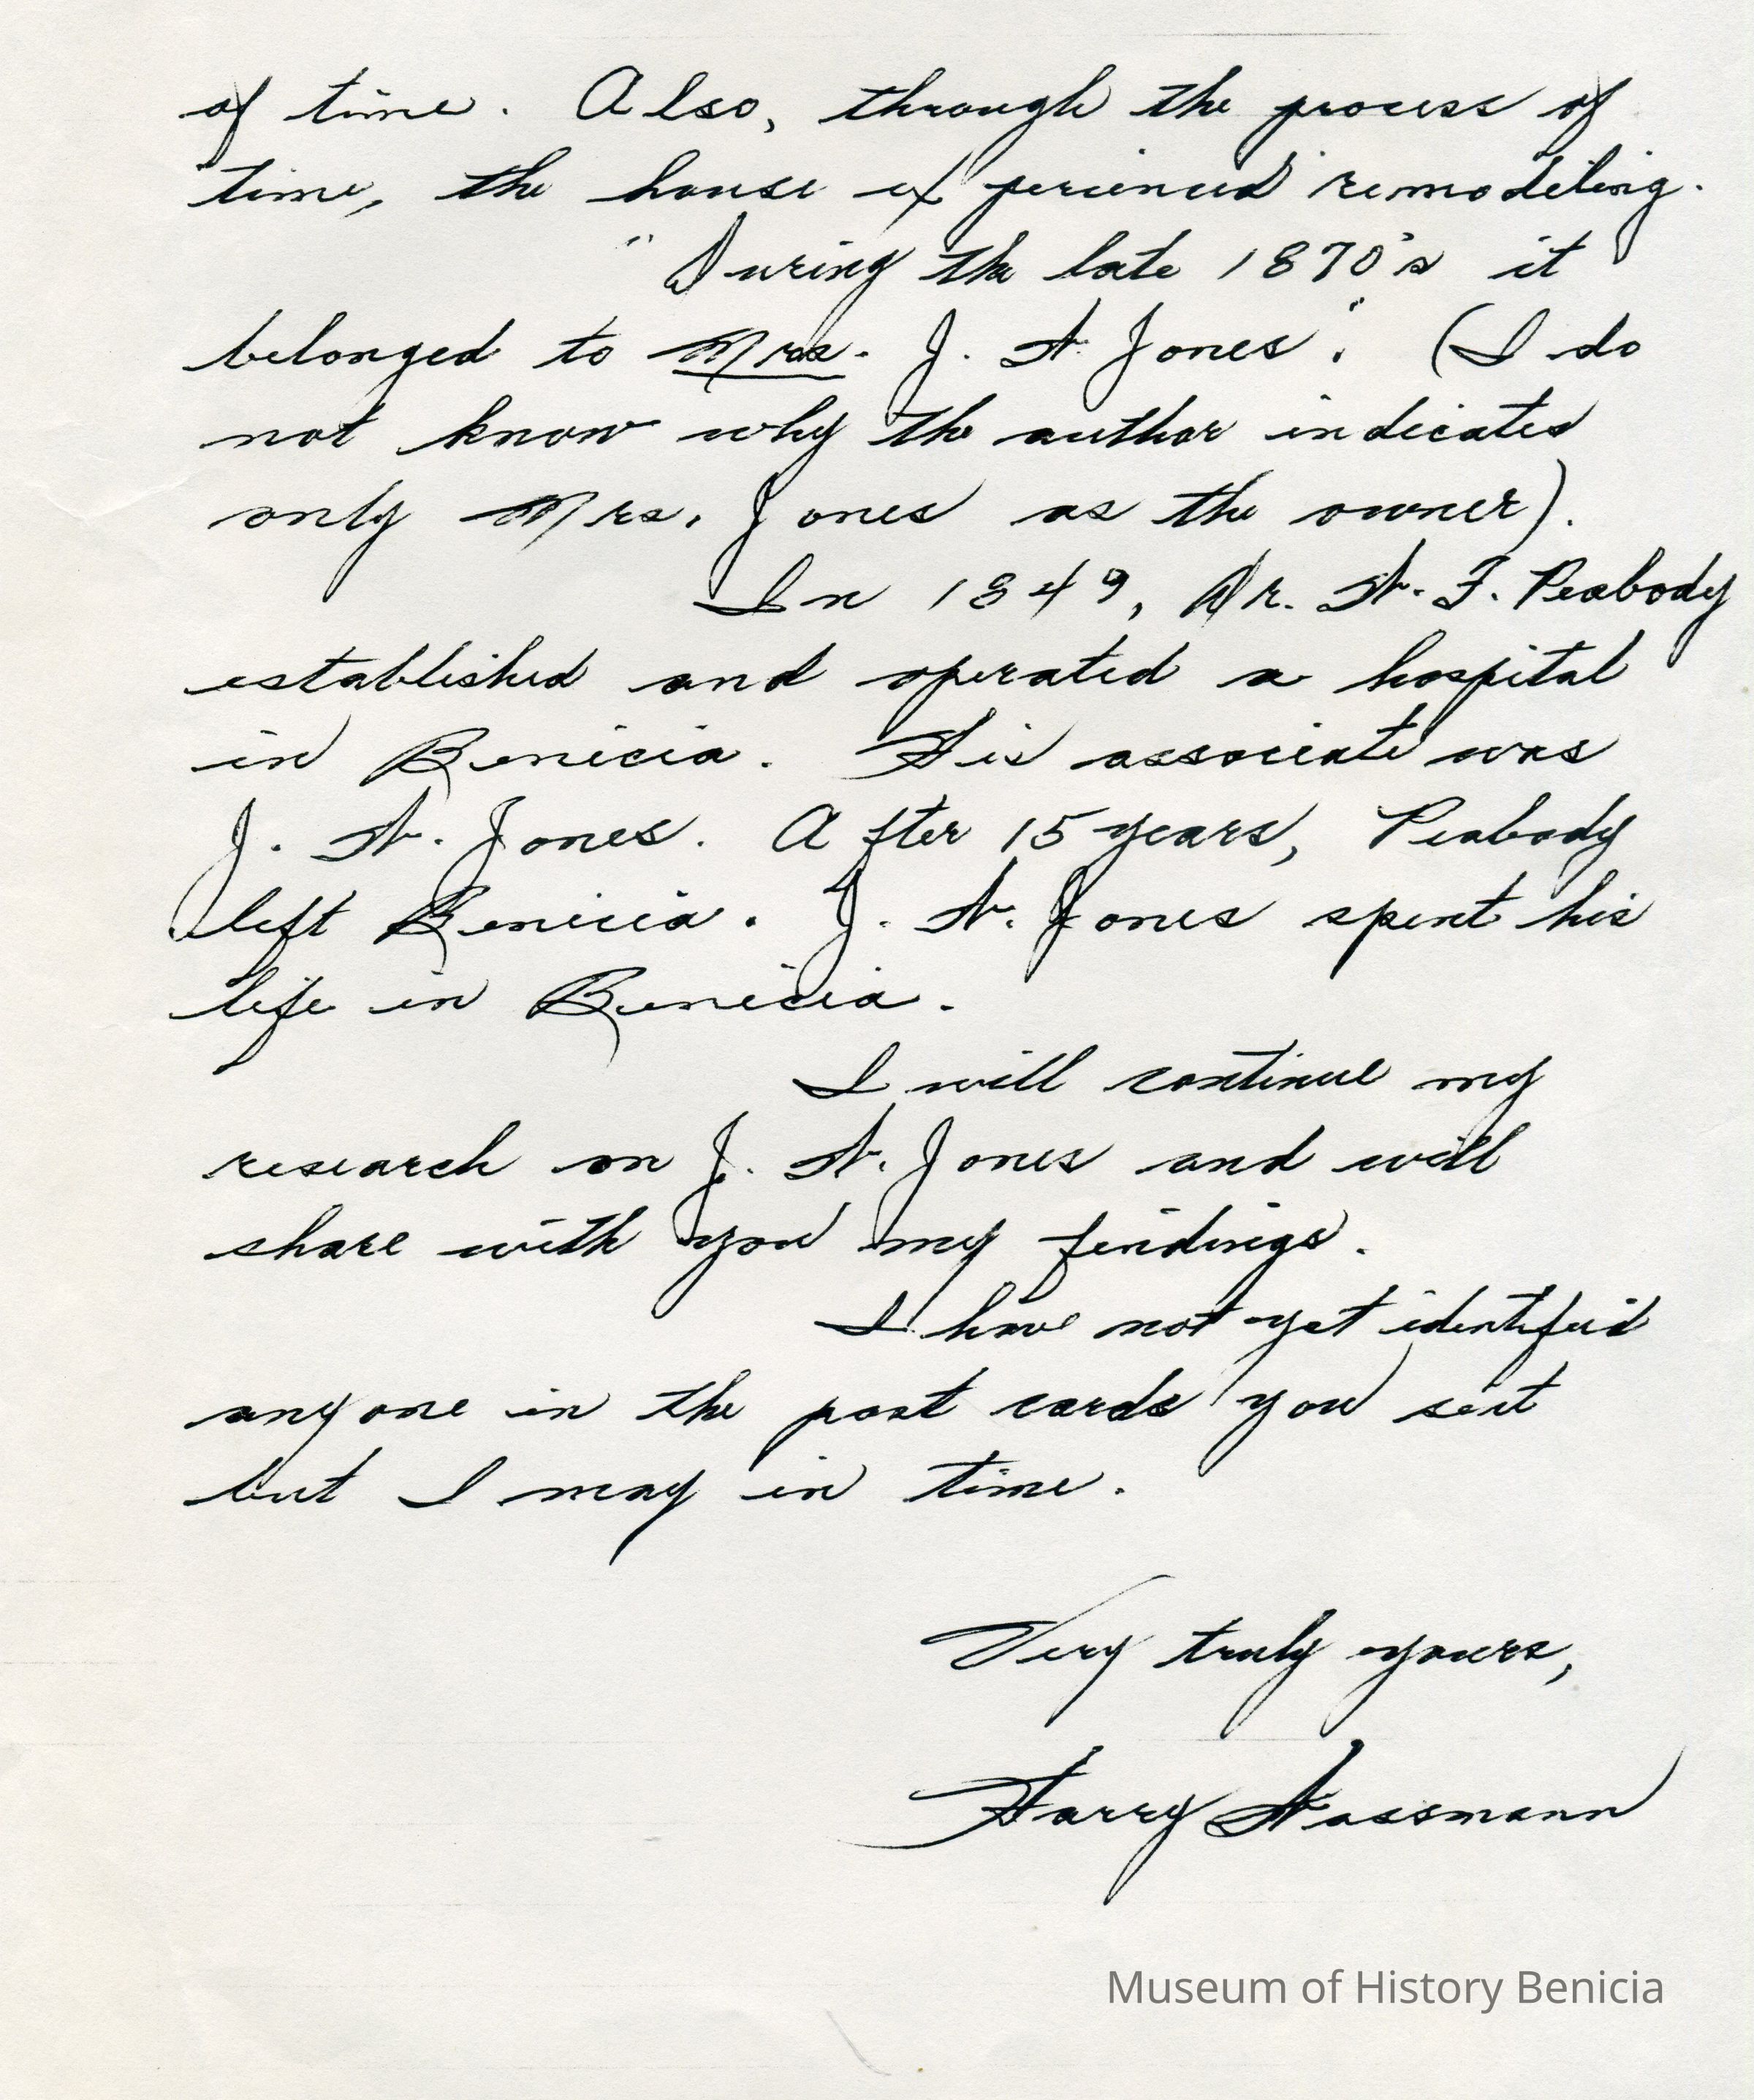 of time. Also, through the process of
time, the house experienced remodeling.
"During the late 1870's it
belonged to Mrs. J. W Jones." (I do
not know why the author indicates
only Mrs. Jones as the owner).
In 1849, Dr. W. F. Peabody
established and operated a hospital
in Benicia. His associate was
J. W. Jones. After 15 years, Peabody
left Benicia. J. W. Jones spent his
life in Benicia.
I will continue my
research on J. W. Jones and will
share with you my findings.
I have not yet identified
anyone in the post cards you sent
but I may in time.
Very truly yours,
Harry Wassmann
Museum of History Benicia